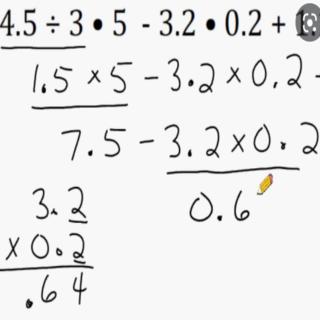 4.5 ÷ 3 • 5 - 3.2 • 0.2 + 1.
1.5 × 5 - 3.2 × 0.2 -
7.5 - 3.2 × 0.2
0.6
3.2
× 0.2
.64